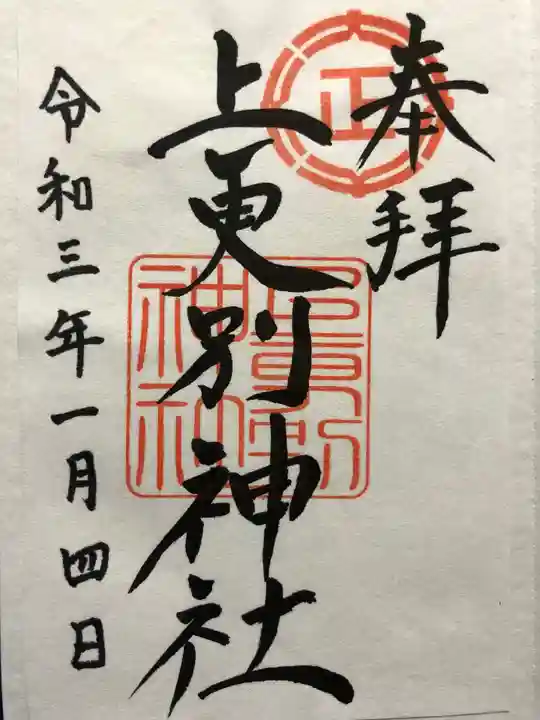 奉拝
正
上更別神社
上更別神社
令和三年一月四日